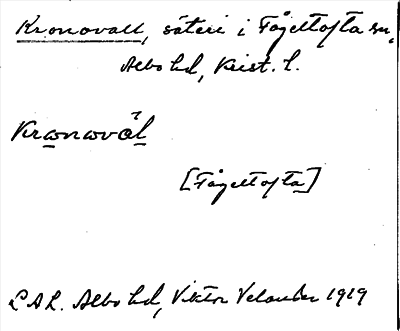 Kronovall, säteri i Fågeltofta sn,
Albo hd, Krist. l.
Kronovål
[Fågeltofta]
LAL. Albo hd, Viktor Velander 1919